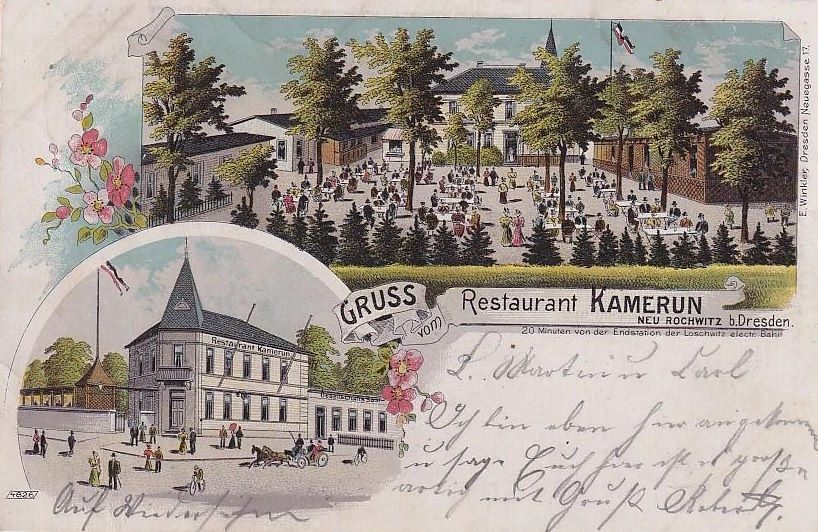 E. Winkler, Dresden Neuegasse 17.
GRUSS vom
Restaurant KAMERUN
NEU ROCHWITZ b. Dresden.
20 Minuten von der Endstation der Loschwitz electr. Bahn
Restaurant Kamerun
L. Martin u Carl
Ich bin eben hier angekommen
u sage Euch hier ist es groß-
artig mit Gruß Robert
Auf Wiedersehn
4626